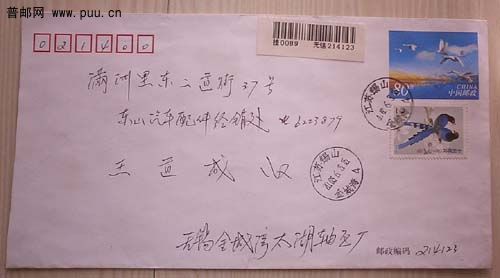 普邮网
www.puu.cn
021400
挂0089 无锡214123
80
CHINA
中国邮政
满洲里东二道街37号
东山汽车配件经销处 电6223879
王道成 收
江苏锡山
江苏锡山
无锡金城湾太湖轴瓦厂
邮政编码 214123